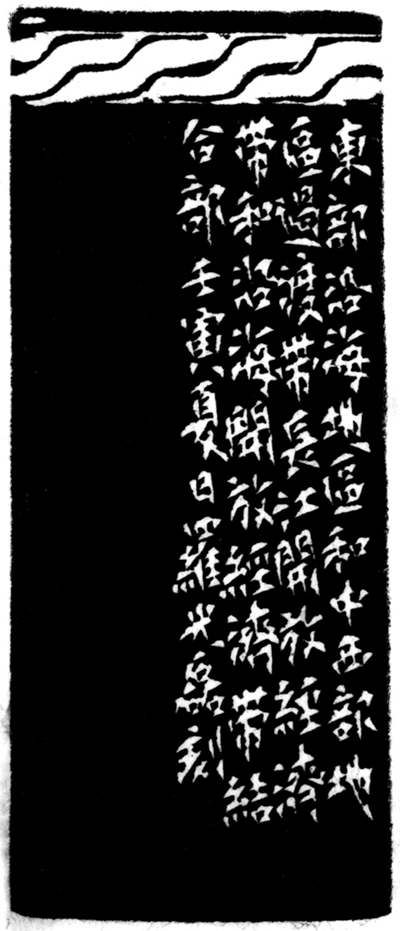 東部沿海地區和中西部地
區過渡帶長江開放經濟
帶和沿海開放經濟帶結
合部 壬寅夏日羅光磊刻